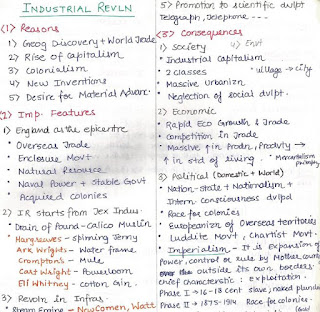 INDUSTRIAL REVLN
(1) Reasons
1) Geog Discovery + World Trade
2) Rise of Capitalism
3) Colonialism
4) New Inventions
5) Desire for Material Advanc.
(2) Imp. Features
1) England as the epicentre
• Overseas Trade
• Enclosure Movt
• Natural Resource
• Naval Power + Stable Govt
• Acquired colonies
2) IR starts from Tex Indus.
• Drain of Pound - Calico Muslin
Hangreaves - spinning Jenny
Ark Wrights - Water frame
Crompton's - Mule
Cart Wright - Powerloom
Eli Whitney - cotton Gin.
3) Revoln in Infras.
• Steam Engine - NewComen, Watt
5) Promotion to scientific dvlpt
Telegraph, telephone ---
(3) Consequences
1) Society 4) Envt
• Industrial Capitalism
• 2 classes village → city
• Massive Urbanizn
• Neglection of social dvlpt.
2) Economic
• Rapid Eco Growth & Trade
• Competition in Trade
• Massive ↑ in Prodn, Prodvty →
↑ in std of living. * Mercantilism
philosophy
3) Political (Domestic + World)
• Nation-State + Nationalism +
Intern Consciousness dvlpt
• Race for colonies
• Europeanizn of Overseas territories
Luddite Movt, Chartist Movt.
• Imperialism - It is expansion of
Power, control or rule by Mother county
over the outside its own borders.
chief characterstic : exploitation.
Phase I → 16-18 cent slave, naked plunder
Phase II → 1875-1914 Race for colonies.